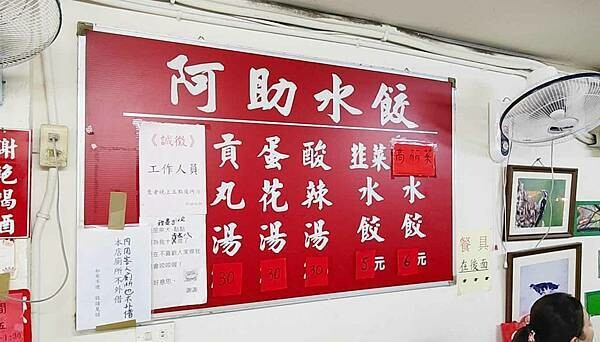 阿助水餃
貢丸湯
30
蛋花湯
30
酸辣湯
30
韭菜水餃
5元
高麗菜水餃
6元
《誠徵》
工作人員
謝絕喝酒
內用客人刷卡也不外借
本店廁所不外借
餐具
在後面